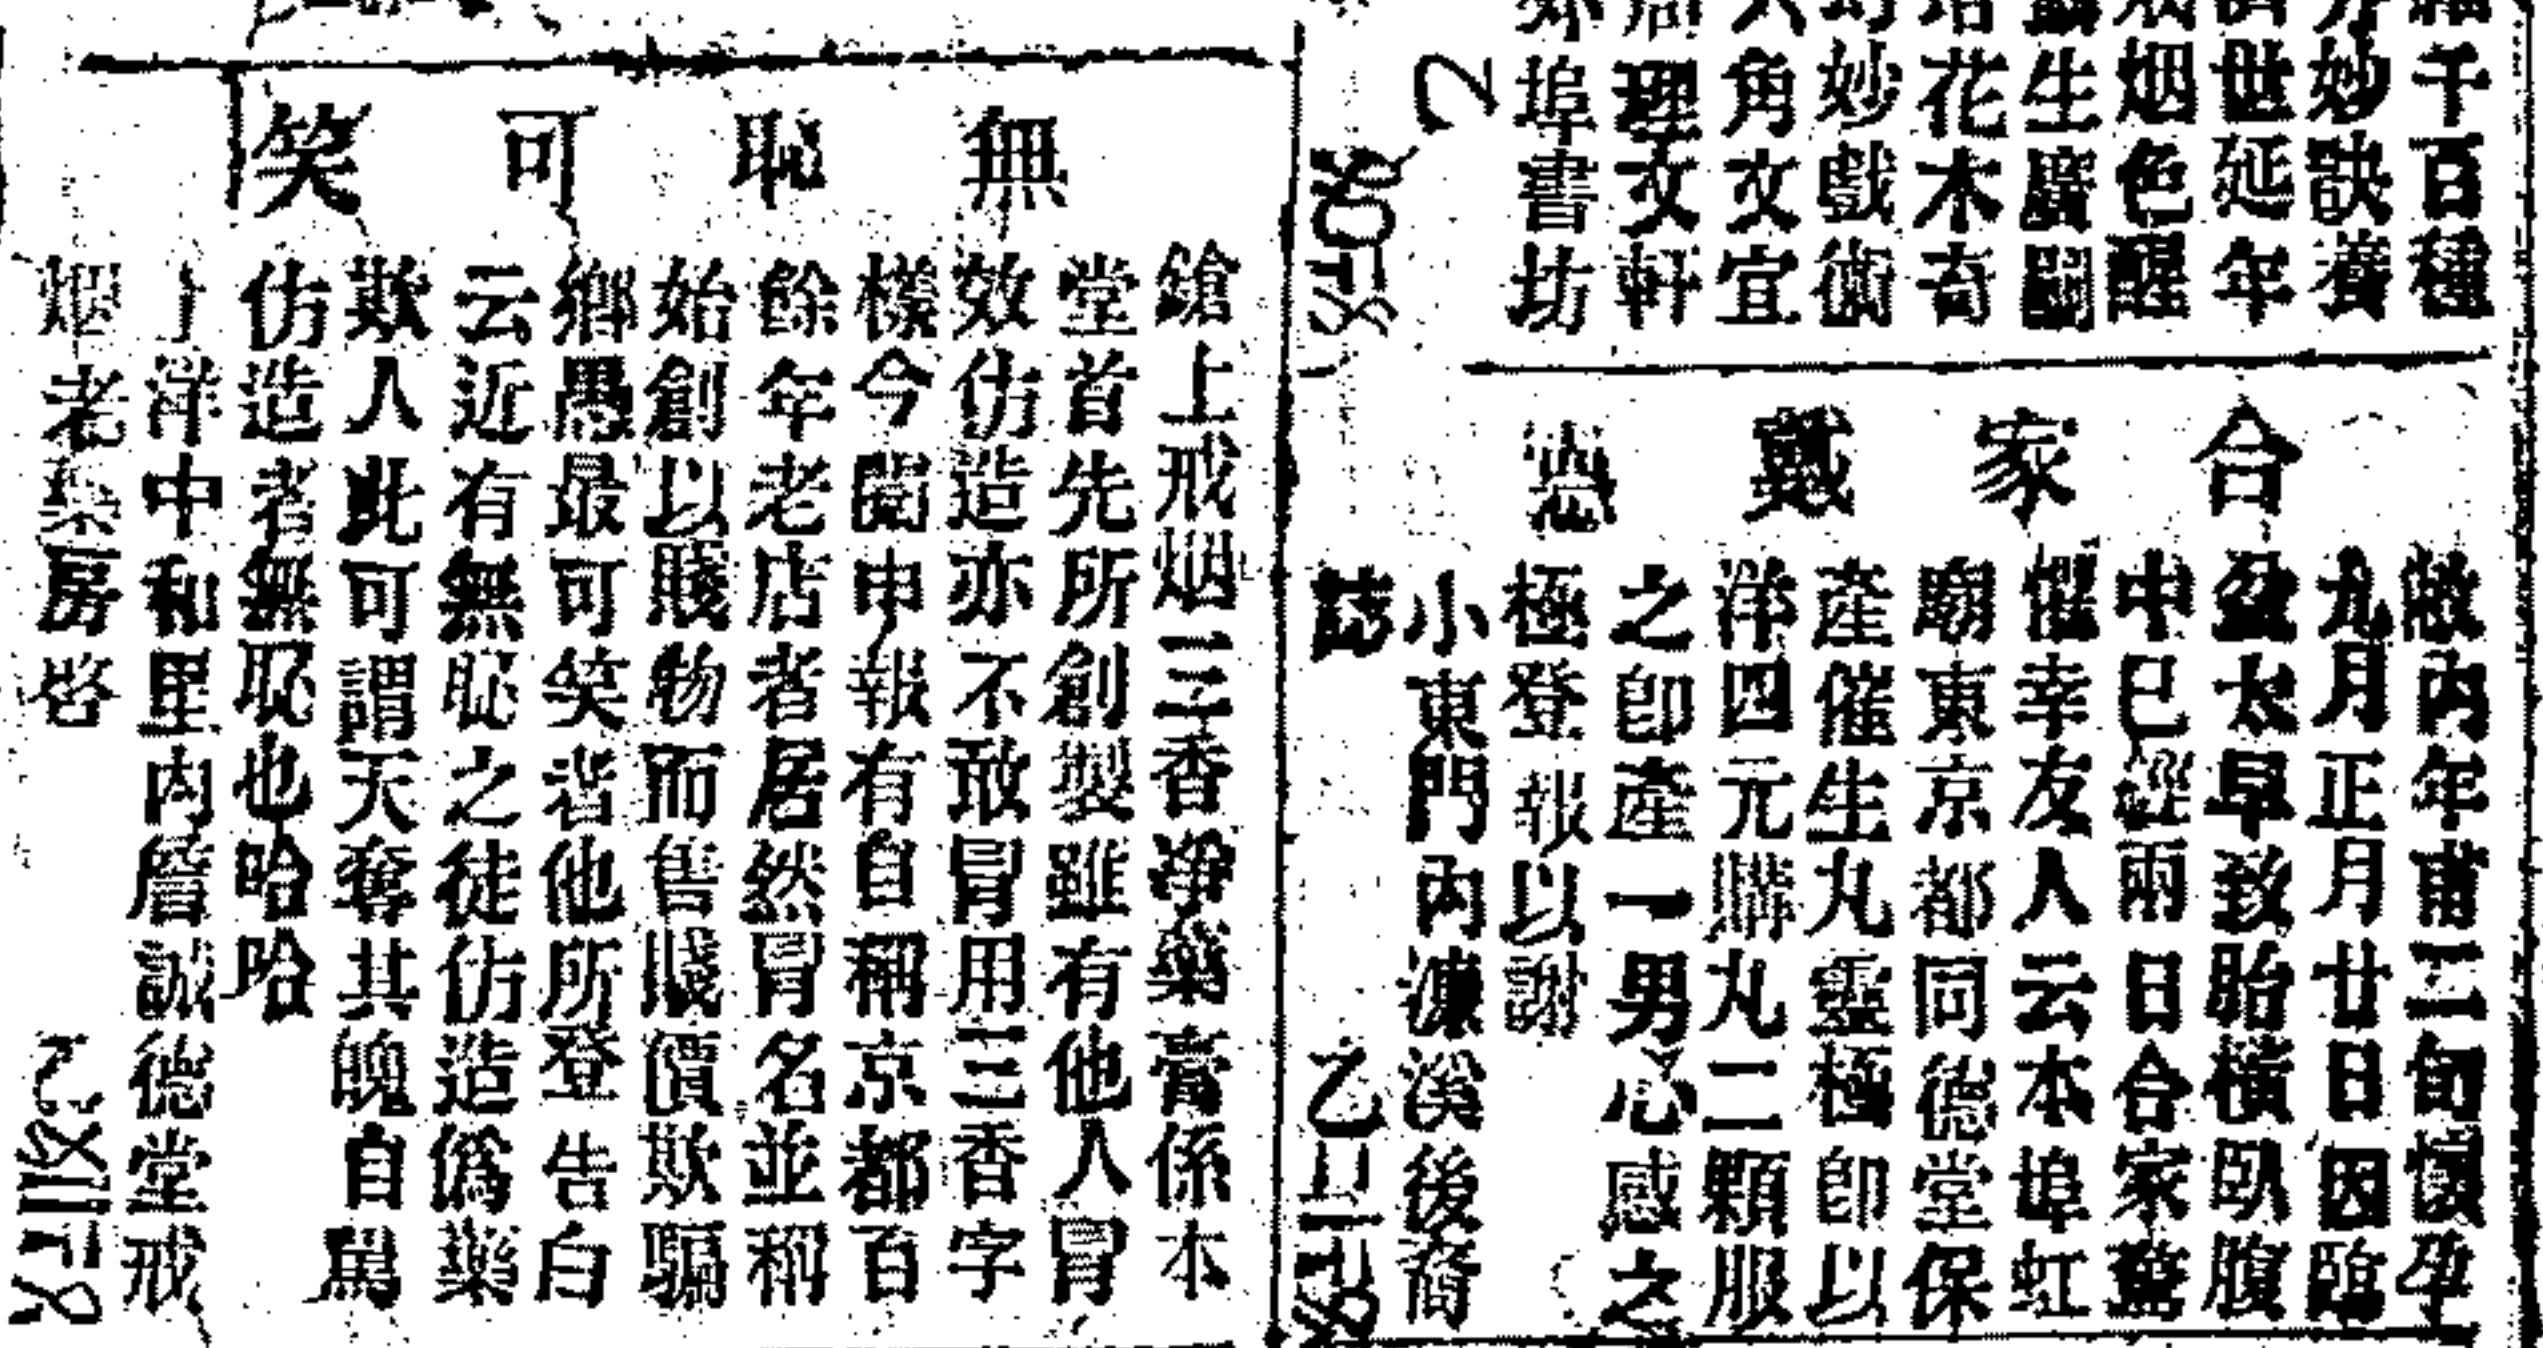 千百種
妙訣養
世延年
烟色醒
生廣嗣
花木奇
妙戲術
角文宜
理文軒
埠書坊
合家戴
敝內年甫二旬懷孕
九月正月廿日因臨
盆太早致胎橫臥腹
中已經兩日合家驚
惶幸友人云本埠虹
廟東京都同德堂保
產催生丸靈極即以
洋四元購丸二顆服
之卽產一男心感之
極登報以謝
小東門內濂溪後裔
誌
無恥可笑
鎗上戒烟三香淨藥膏係本
堂首先所創製雖有他人冒
效仿造亦不敢冒用三香字
樣今閱申報有自稱京都百
餘年老店者居然冒名並稱
始創以賤物而售賤價欺騙
鄉愚最可笑者他所登告白
云近有無恥之徒仿造僞藥
欺人此可謂天奪其魄自罵
仿造者無恥也哈哈
洋中和里內詹誠德堂戒
烟老藥房啓